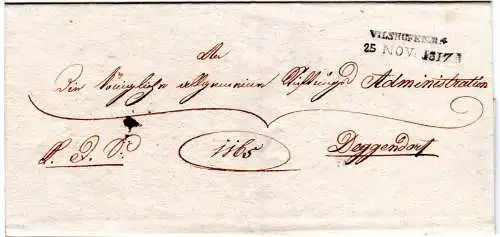 VILSHOFEN.R.4
25 NOV. 1817
An
Die Königliche allgemeine Stiftungs Administration
1165
Deggendorf